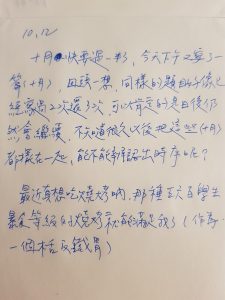 10,12
十月快要過一半了，今天下午又寫了一
篇《十月》，回頭一想，同樣的題目好像已
經寫過2次還3次，可以肯定的是日後仍
然會繼續，不知道很久以後把這些《十月》
都擺在一起，能不能辨認出時序呢？
最近真想吃燒烤吶，那種正大百學生
暴食等級的燒烤就能滿足我了（作為
一個枯反鐵胃）